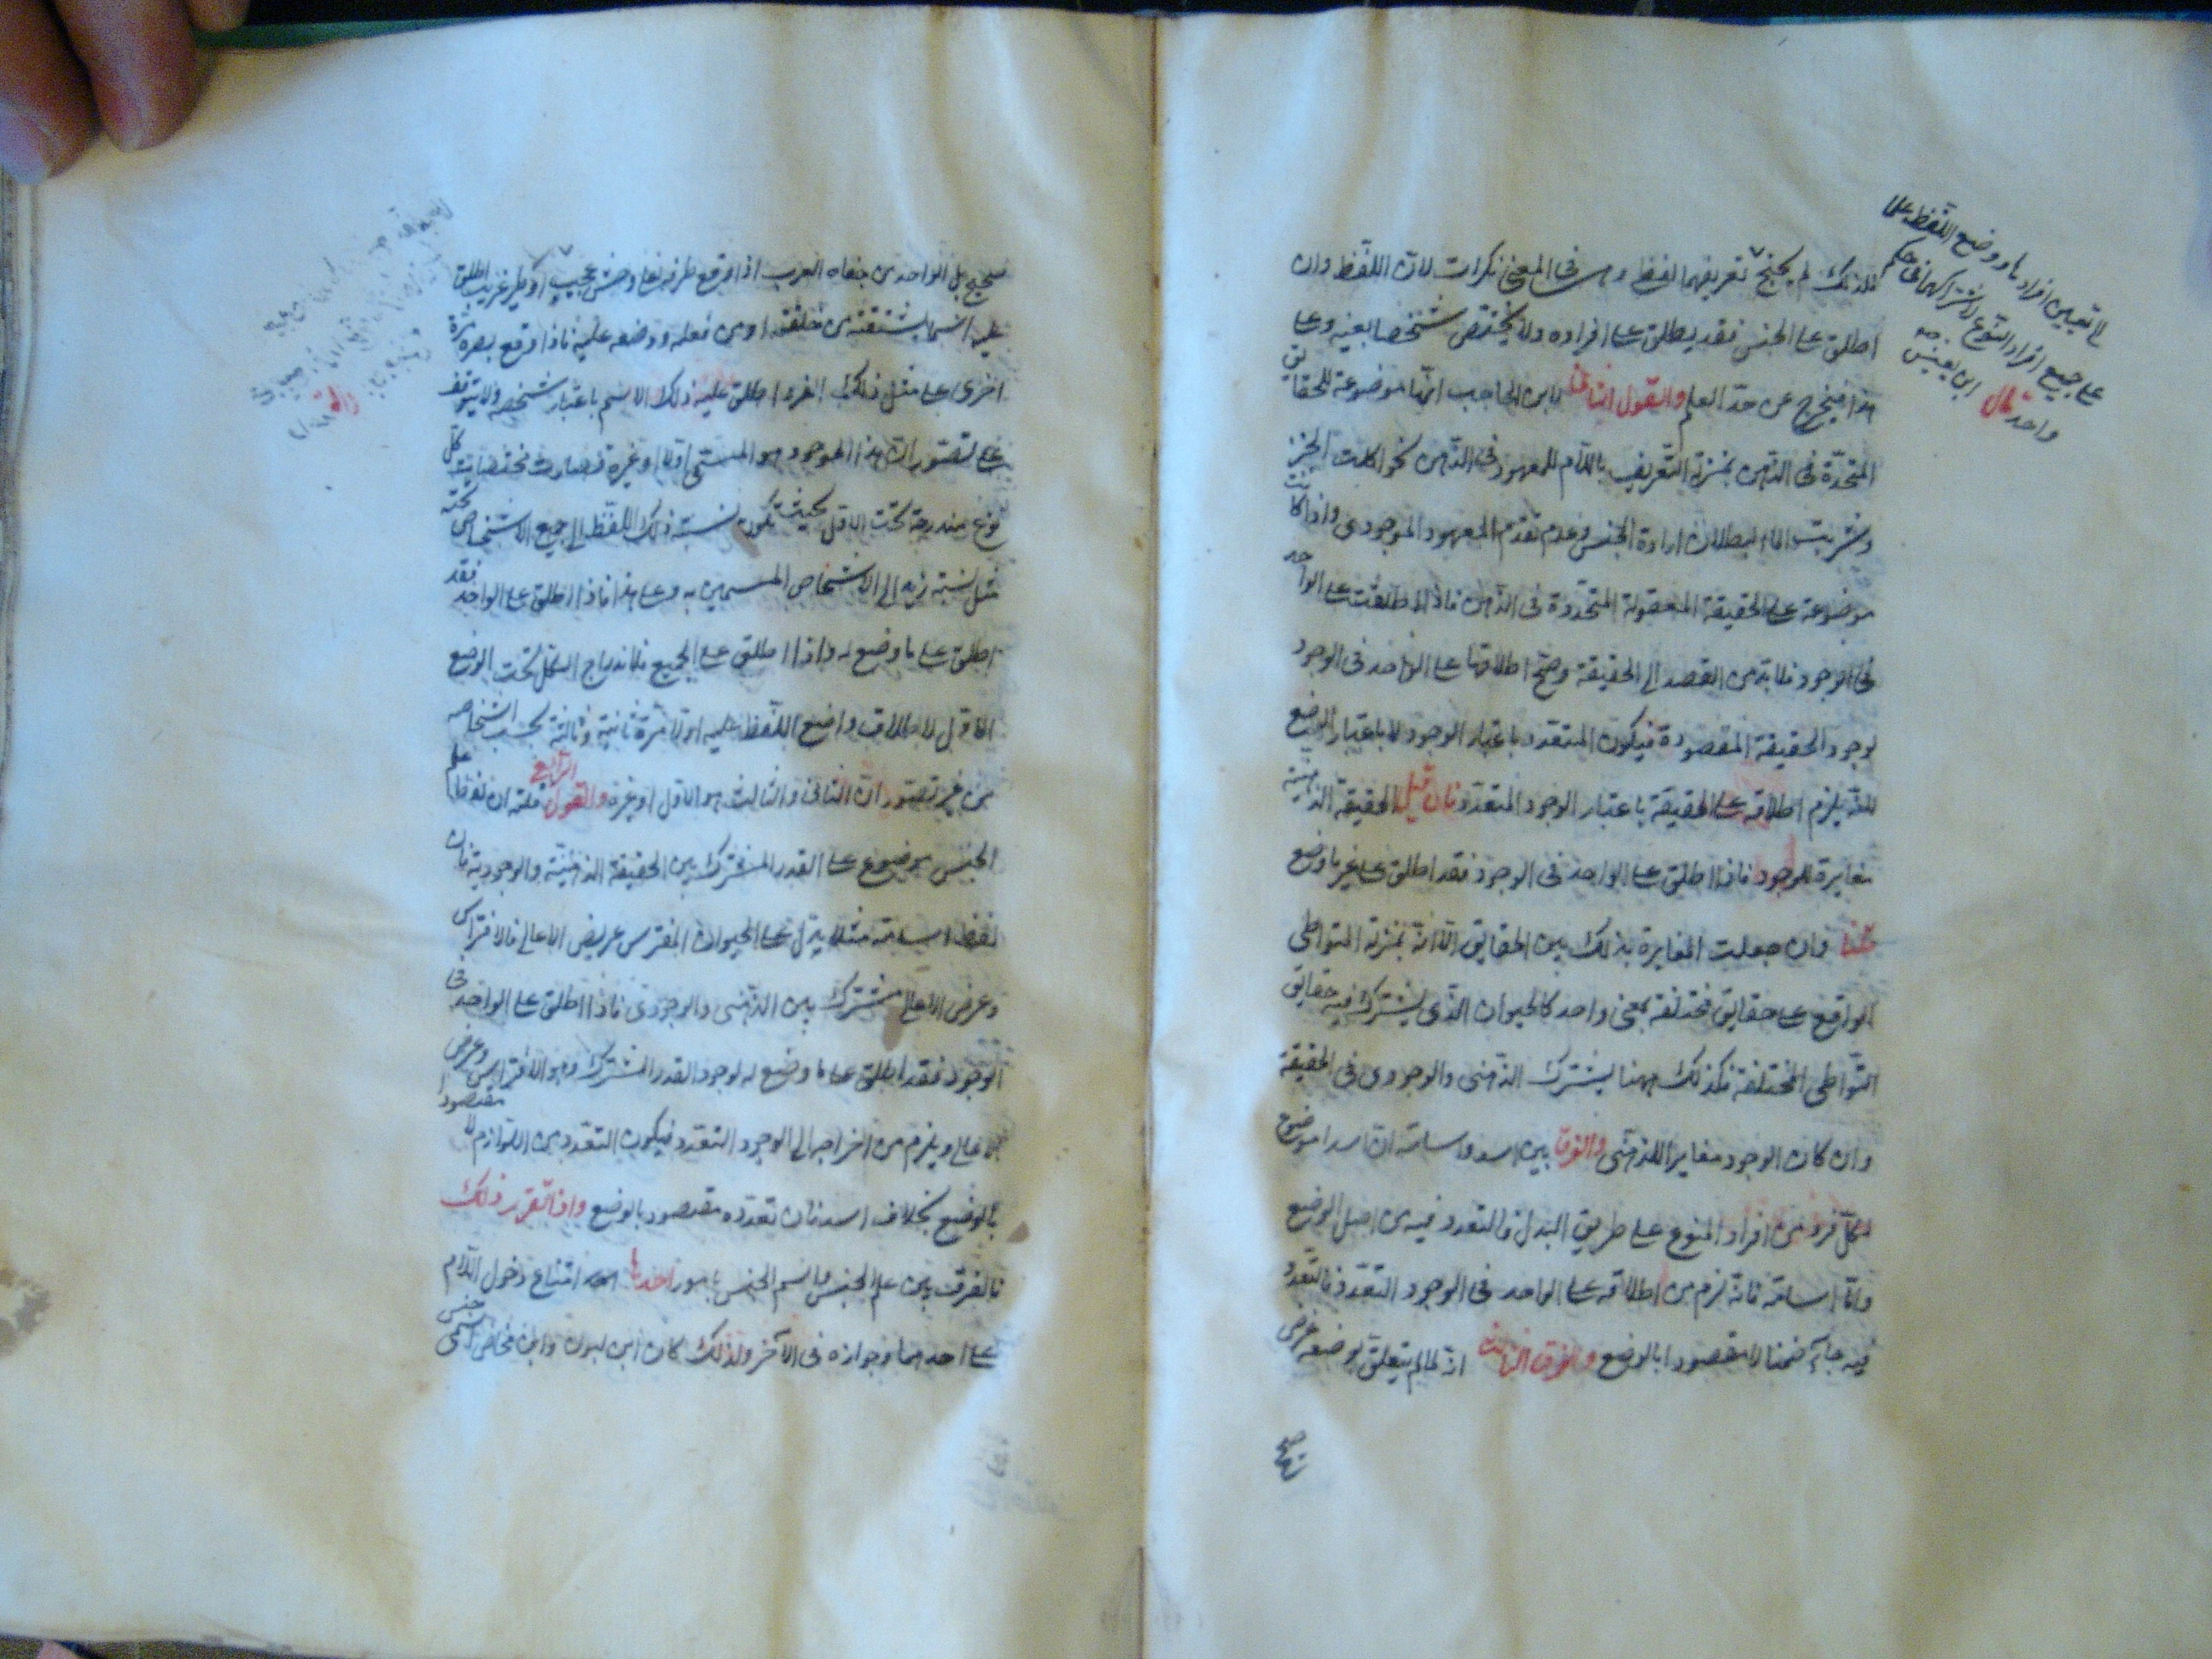 فلذلك لم يحتج تعريفهما لفظي وهي في المعنى نكرات لان اللفظ وان
اطلق على الجنس فقد يطلق على افراده ولا يختص شخصا بعينه وعلى
هذا فيخرج عن حدّ العلم والقول الثاني لابن الحاجب انها موضوعة للحقائق
المتحدة في الذهن بمنزلة التعريف باللام للمعهود في الذهن نحو اكلت الخبز
وشربت الماء لبطلان ارادة الجنس وعدم تقدم المعهود الموجودي واذا كانت
موضوعة على الحقيقة المعقولة المتحدة في الذهن فاذا اطلقت على الواحد
في الوجود فلا بد من القصد الى الحقيقة وصح اطلاقها على الواحد في الوجود
لوجود الحقيقة المقصودة فيكون المتعدد باعتبار الوجود لا باعتبار الوضع
لانه يلزم اطلاقه على الحقيقة باعتبار الوجود المتعدد فان قيل الحقيقة الذهنية
مغايرة للوجود فاذا اطلق على الواحد في الوجود فقد اطلق على غير ما وضع
قلنا وان حصلت المغايرة بذلك بين الحقايق الا انه بمنزلة المتواطي
الواقع على حقايق مختلفة بمعنى واحد كالحيوان الذي يشترك فيه حقايق
التواطي المختلفة فكذلك ههنا يشترك الذهني والوجودي في الحقيقة
وان كان الوجود مغايرا للذهني والفرق بين اسد واسامة ان اسدا موضوع
لكل فرد من افراد النوع على طريق البدل فالتعدد فيه من اصل الوضع
واما اسامة فانه لزم من اطلاقه على الواحد في الوجود التعدد فالتعدد
فيه جاء ضمنا لا مقصودا بالوضع والقول الثالث انه لما لم يتعلق بوضعه غرض
لا تعيين افراد ما ووضع اللفظ على
على جميع افراد النوع لاشتراكها في حكم
واحد قال ابن يعيش صح
صحيح بل الواحد من جفاة العرب اذا وقع طرفه على وحش عجيب او طير غريب اطلق
عليه اسما يشتقه من خلقته او من فعله ووضعه عليه فاذا وقع بصره مرة
اخرى على مثل ذلك الفرد اطلق عليه ذلك الاسم باعتبار شخصه ولا يتوقف
على تصور ان هذا الموجود هو المسمى اولا او غيره فصارت مختصات كل
نوع مندرجة تحت الاول بحيث تكون نسبة ذلك اللفظ الى جميع الاشخاص تحته
مثل نسبة زيد الى الاشخاص المسمين به وعلى هذا فاذا اطلق على الواحد فقد
اطلق على ما وضع له واذا اطلق على الجميع فلاندراج الكل تحت الوضع
الاول لاطلاق واضع اللفظ عليه اولا مرة ثانية وثالثة بحسب اشخاصه
من غير تصور ان الثاني والثالث هو الاول او غيره والقول الرابع قلته ان لفظ علم
الجنس موضوع على القدر المشترك بين الحقيقة الذهنية والوجودية فان
لفظ اسامة مثلا يدل على الحيوان المفترس عريض الاعالي فالافتراس
وعرض الاعالي مشترك بين الذهني والوجودي فاذا اطلق على الواحد في
الوجود فقد اطلق على ما وضع له لوجود القدر المشترك وهو الافتراس وعرض
الاعالي ويلزم من اخراجه الى الوجود التعدد فيكون التعدد من اللوازم لا مقصودا
بالوضع بخلاف اسد فان تعدده مقصود بالوضع واذا تقرر ذلك
فالفرق بين علم الجنس واسم الجنس بامور احدها امتناع دخول اللام
على احدهما وجوازه في الآخر ولذلك كان ابن لبون وابن مخاض اسمي جنس